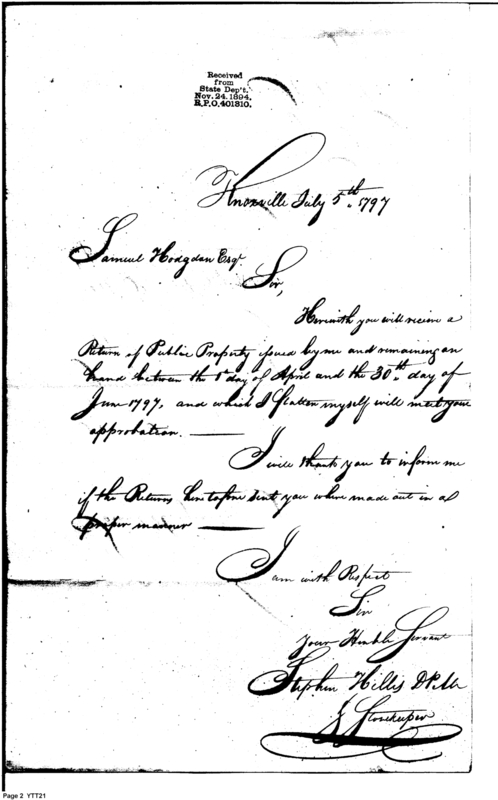 Received
from
State Dep't.
Nov. 24. 1894.
R.P.O. 401310.
Knoxville July 5th. 1797
Samuel Hodgdan Esqr.
Sir,
Herewith you will receive a
Return of Public Property issued by me and remaining on
hand between the 1st day of April and the 30th. day of
June 1797, and which I flatter myself will meet your
approbation. —
I will thank you to inform me
if the Returns heretofore sent you where made out in a
proper manner —
I am with Respect
Sir
your Humble Servant
Stephen Hillis
& Storekeeper
Page 2 YTT21